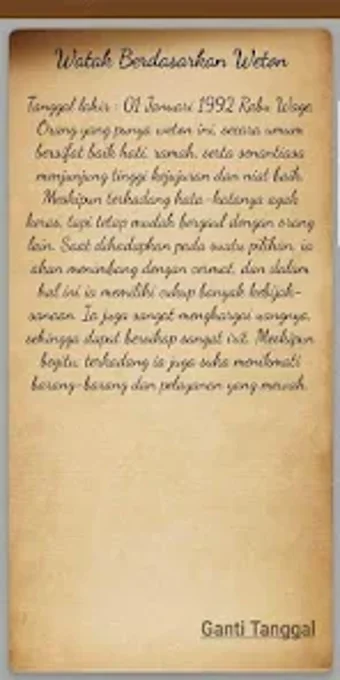 Watak Berdasarkan Weton
Tanggal lahir : 01 Januari 1992 Rabu Wage
Orang yang punya weton ini, secara umum
bersifat baik hati, ramah, serta senantiasa
menjunjung tinggi kejujuran dan niat baik.
Meskipun terkadang kata-katanya agak
keras, tapi tetap mudah bergaul dengan orang
lain. Saat dihadapkan pada suatu pilihan, ia
akan menimbang dengan cermat, dan dalam
hal ini ia memiliki cukup banyak kebijak-
sanaan. Ia juga sangat menghargai uangnya,
sehingga dapat bersikap sangat irit. Meskipun
begitu, terkadang ia juga suka menikmati
barang-barang dan pelayanan yang mewah.
Ganti Tanggal